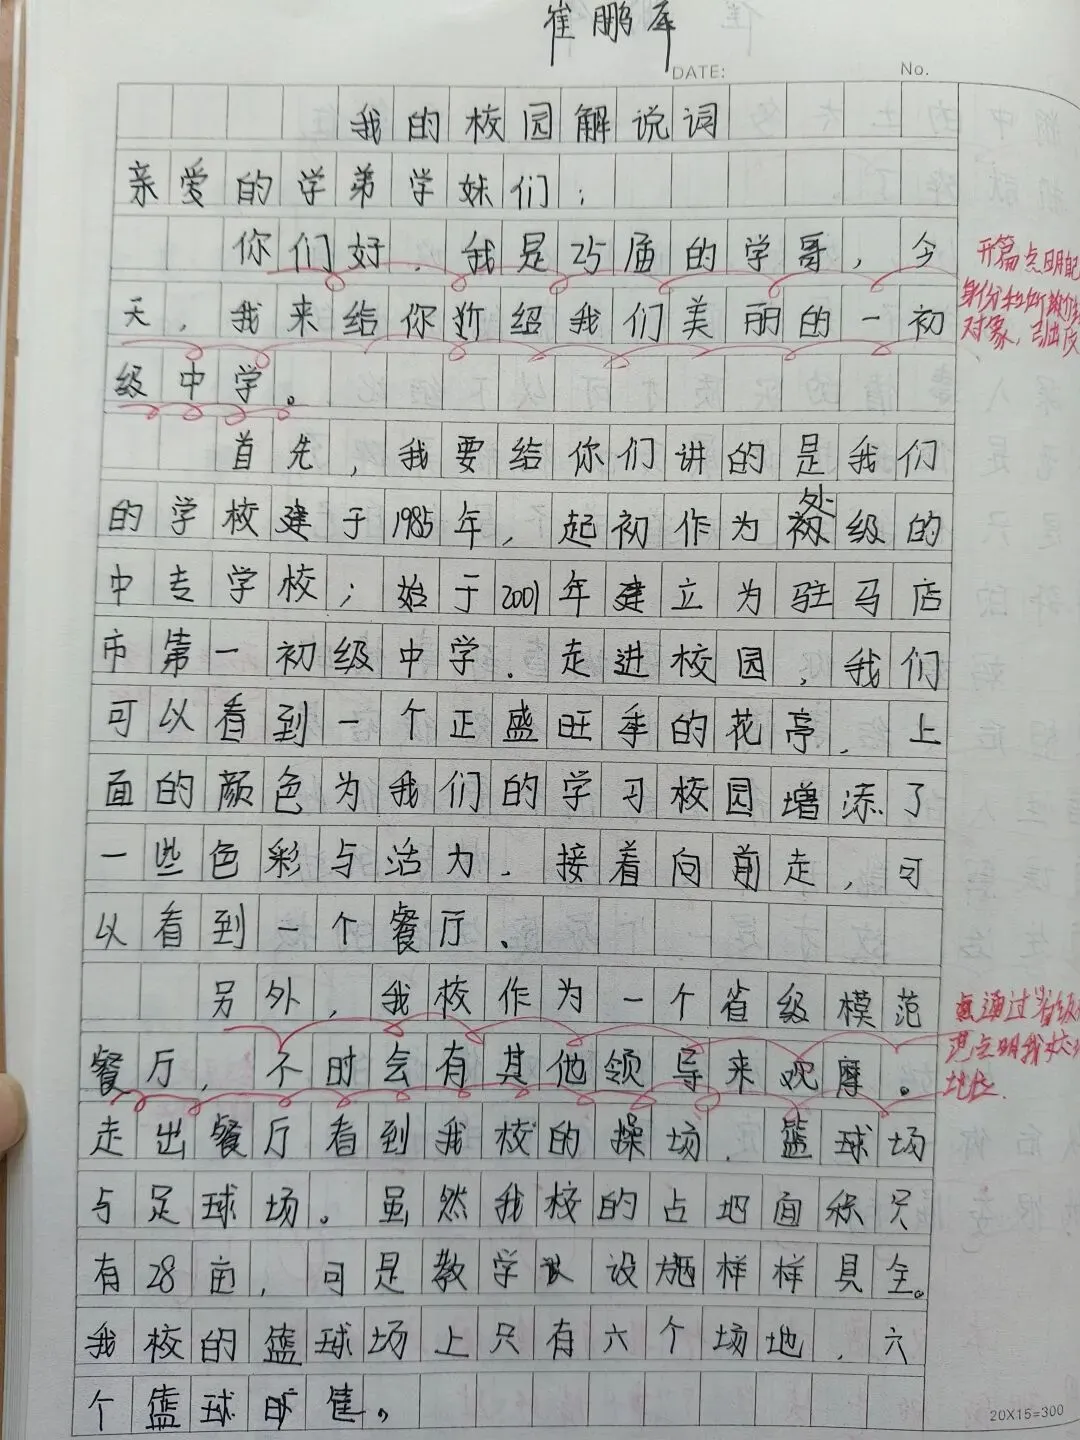 崔鹏
DATE:
No.
我的校园解说词
亲爱的学弟学妹们：
你们好，我是25届的学哥，今
天，我来给你介绍我们美丽的一初
级中学。
开篇点明
身份和
对象，引出
首先，我要给你们讲的是我们
的学校建于1985年，起初作为处级的
中专学校；始于2001年建立为驻马店
市第一初级中学．走进校园，我们
可以看到一个正盛旺季的花亭，上
面的颜色为我们的学习校园增添了
一些色彩与活力．接着向前走，可
以看到一个餐厅、
另外，我校作为一个省级模范
餐厅，不时会有其他领导来观摩。
通过省级
点明我校
地位
走出餐厅看到我校的操场、篮球场
与足球场。虽然我校的占地面积只
有28亩，可是教学设施样样具全。
我校的篮球场上只有六个场地，六
个篮球
20X15=300